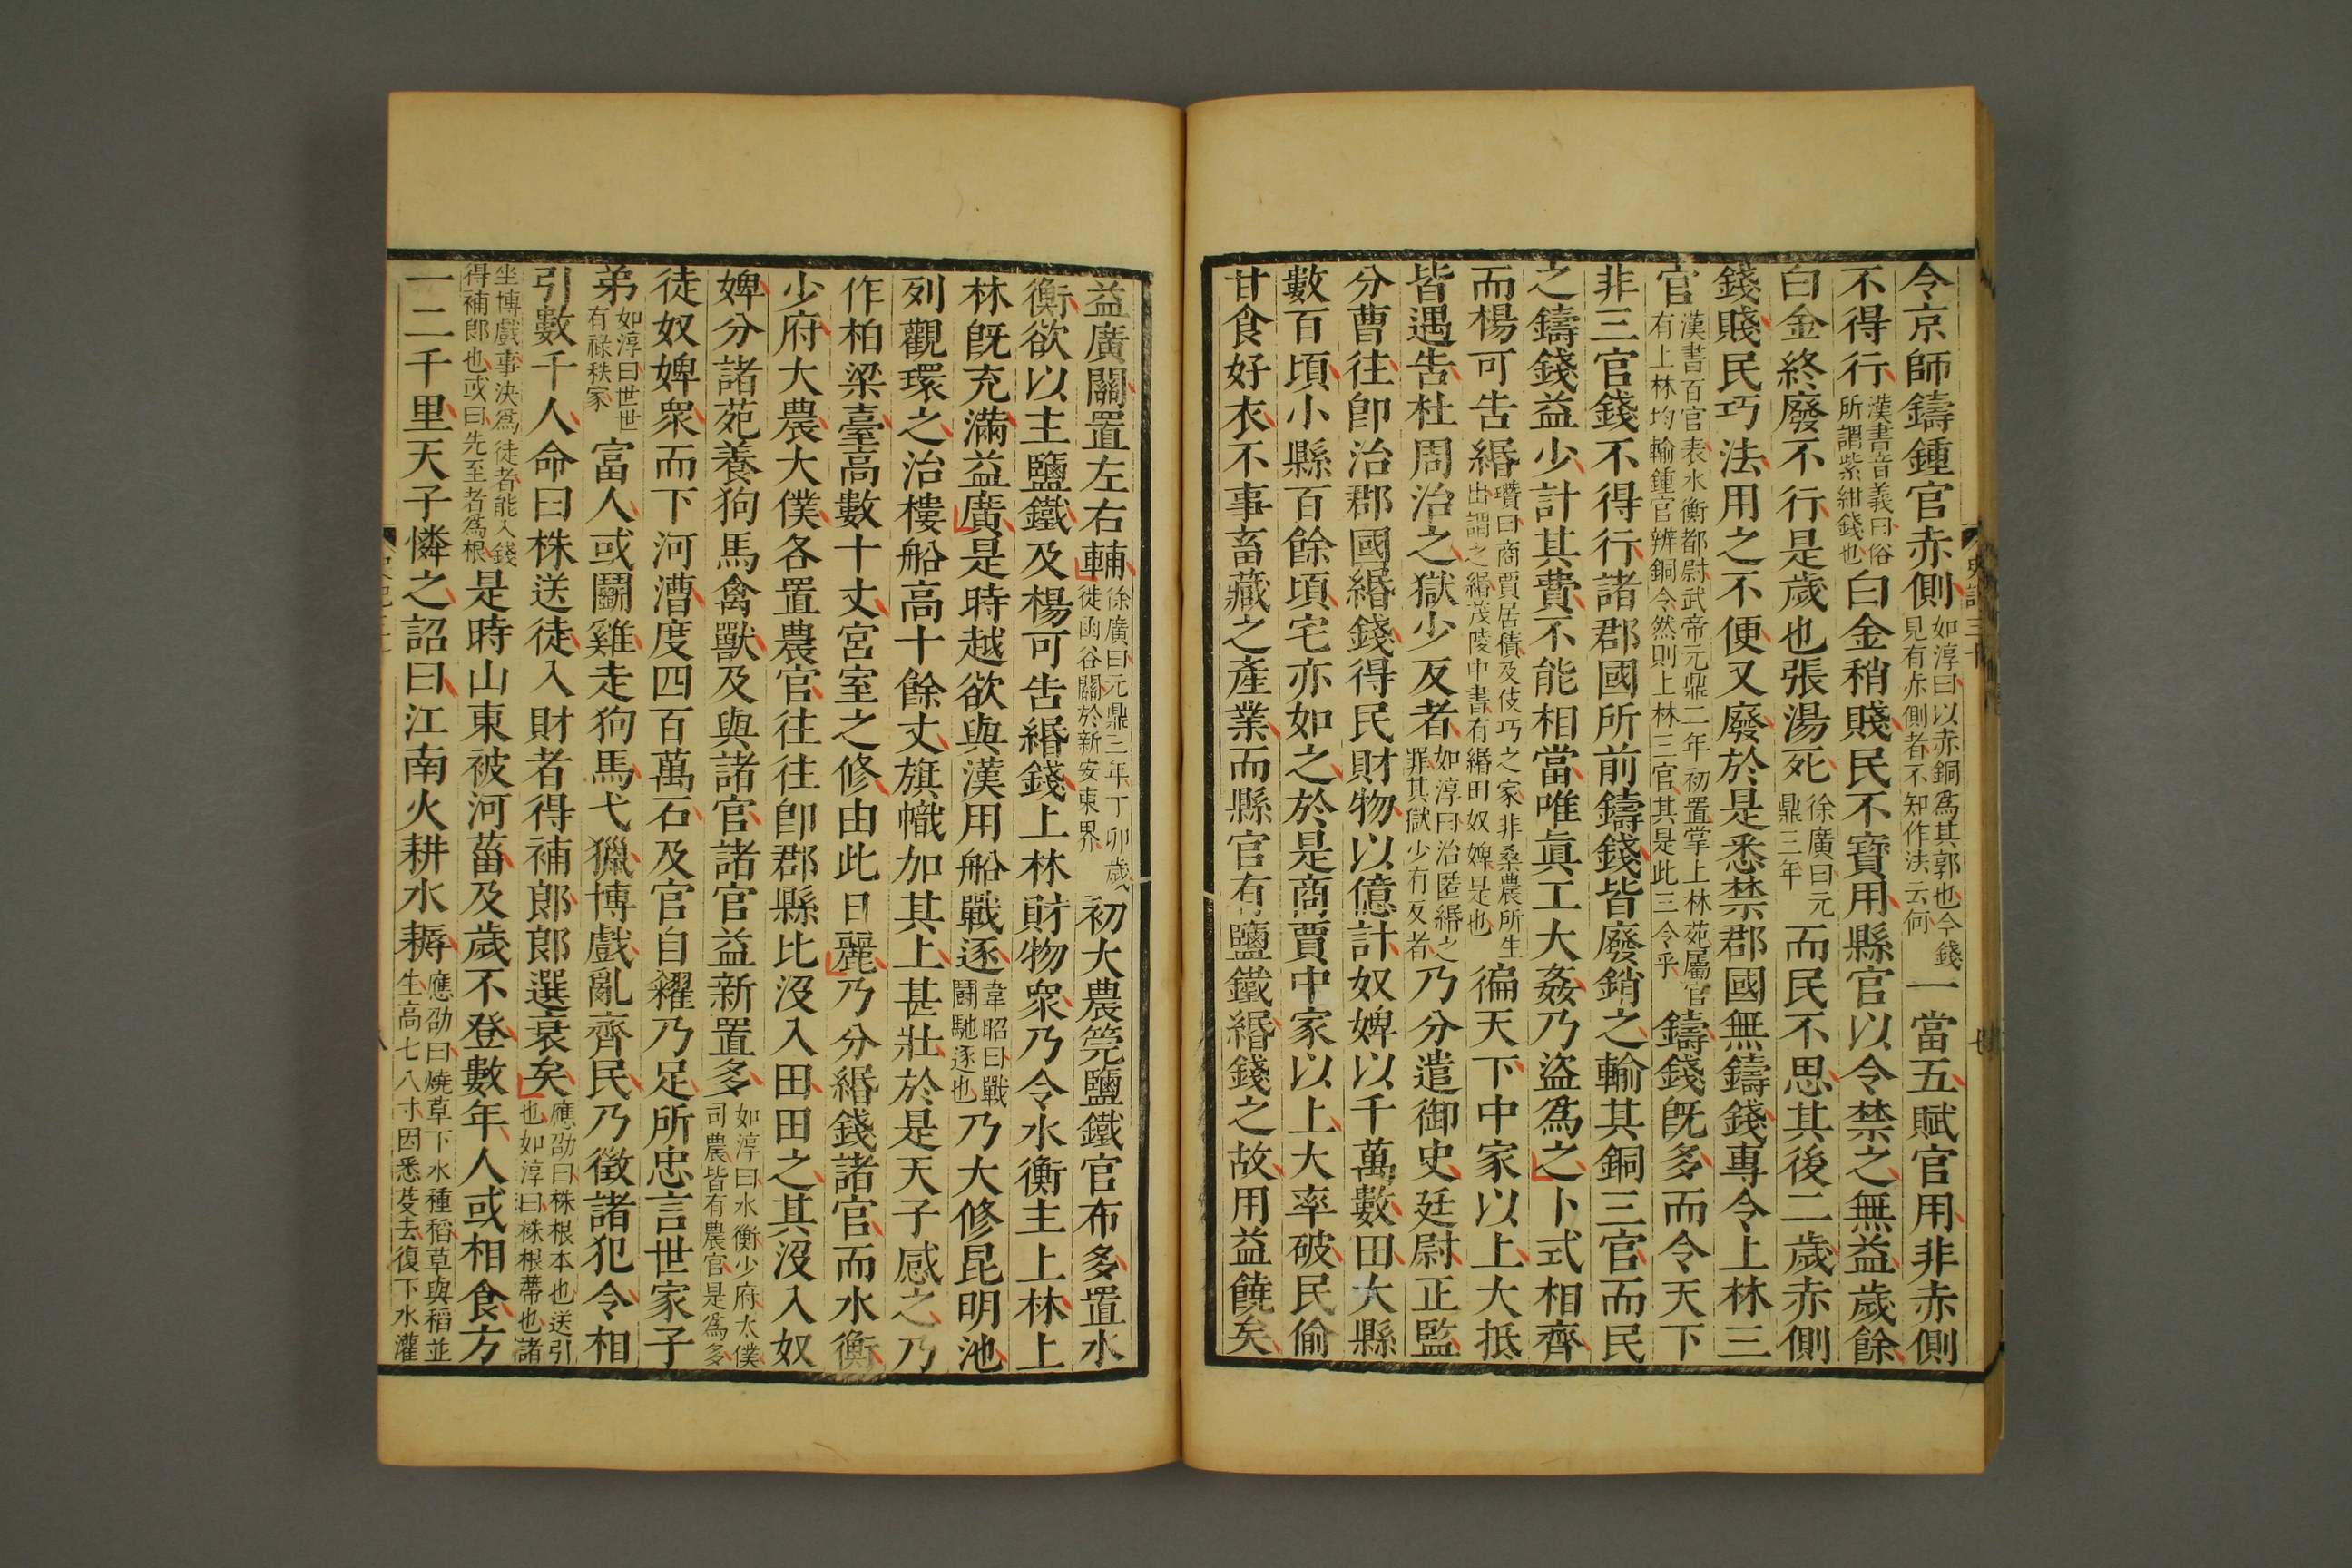 令京師鑄鍾官赤側如淳曰以赤銅爲其郭也今錢見有赤側者不知作法云何一當五賦官用非赤側
不得行漢書音義曰俗所謂紫紺錢也白金稍賤民不寶用縣官以令禁之無益歲餘
白金終廢不行是歲也張湯死徐廣曰元鼎三年而民不思其後二歲赤側
錢賤民巧法用之不便又廢於是悉禁郡國無鑄錢專令上林三
官漢書百官表水衡都尉武帝元鼎二年初置掌上林苑屬官有上林均輸鍾官辨銅令然則上林三官其是此三令乎鑄錢旣多而令天下
非三官錢不得行諸郡國所前鑄錢皆廢銷之輸其銅三官而民
之鑄錢益少計其費不能相當唯眞工大姦乃盜爲之卜式相齊
而楊可告緡瓚曰商賈居積及伎巧之家非桑農所生出謂之緡茂陵中書有緡田奴婢是也徧天下中家以上大抵
皆遇告杜周治之獄少反者如淳曰治匿緡之罪其獄少有反者乃分遣御史廷尉正監
分曹往卽治郡國緡錢得民財物以億計奴婢以千萬數田大縣
數百頃小縣百餘頃宅亦如之於是商賈中家以上大率破民偷
甘食好衣不事畜藏之產業而縣官有鹽鐵緡錢之故用益饒矣
史記三十
七
益廣關置左右輔徐廣曰元鼎三年丁卯歲徙函谷關於新安東界初大農筦鹽鐵官布多置水
衡欲以主鹽鐵及楊可告緡錢上林財物衆乃令水衡主上林上
林旣充滿益廣是時越欲與漢用船戰逐韋昭曰戰鬭馳逐也乃大修昆明池
列觀環之治樓船高十餘丈旗幟加其上甚壯於是天子感之乃
作柏梁臺高數十丈宮室之修由此日麗乃分緡錢諸官而水衡
少府大農大僕各置農官往往卽郡縣比沒入田田之其沒入奴
婢分諸苑養狗馬禽獸及與諸官諸官益新置多如淳曰水衡少府太僕司農皆有農官是爲多
徒奴婢衆而下河漕度四百萬石及官自糴乃足所忠言世家子
弟如淳曰世世有祿秩家富人或鬭雞走狗馬弋獵博戲亂齊民乃徵諸犯令相
引數千人命曰株送徒入財者得補郎郎選衰矣應劭曰株根本也送引也如淳曰株根蔕也諸
坐博戲事決爲徒者能入錢得補郎也或曰先至者爲根是時山東被河菑及歲不登數年人或相食方
一二千里天子憐之詔曰江南火耕水耨應劭曰燒草下水種稻草與稻並生高七八寸因悉芟去復下水灌